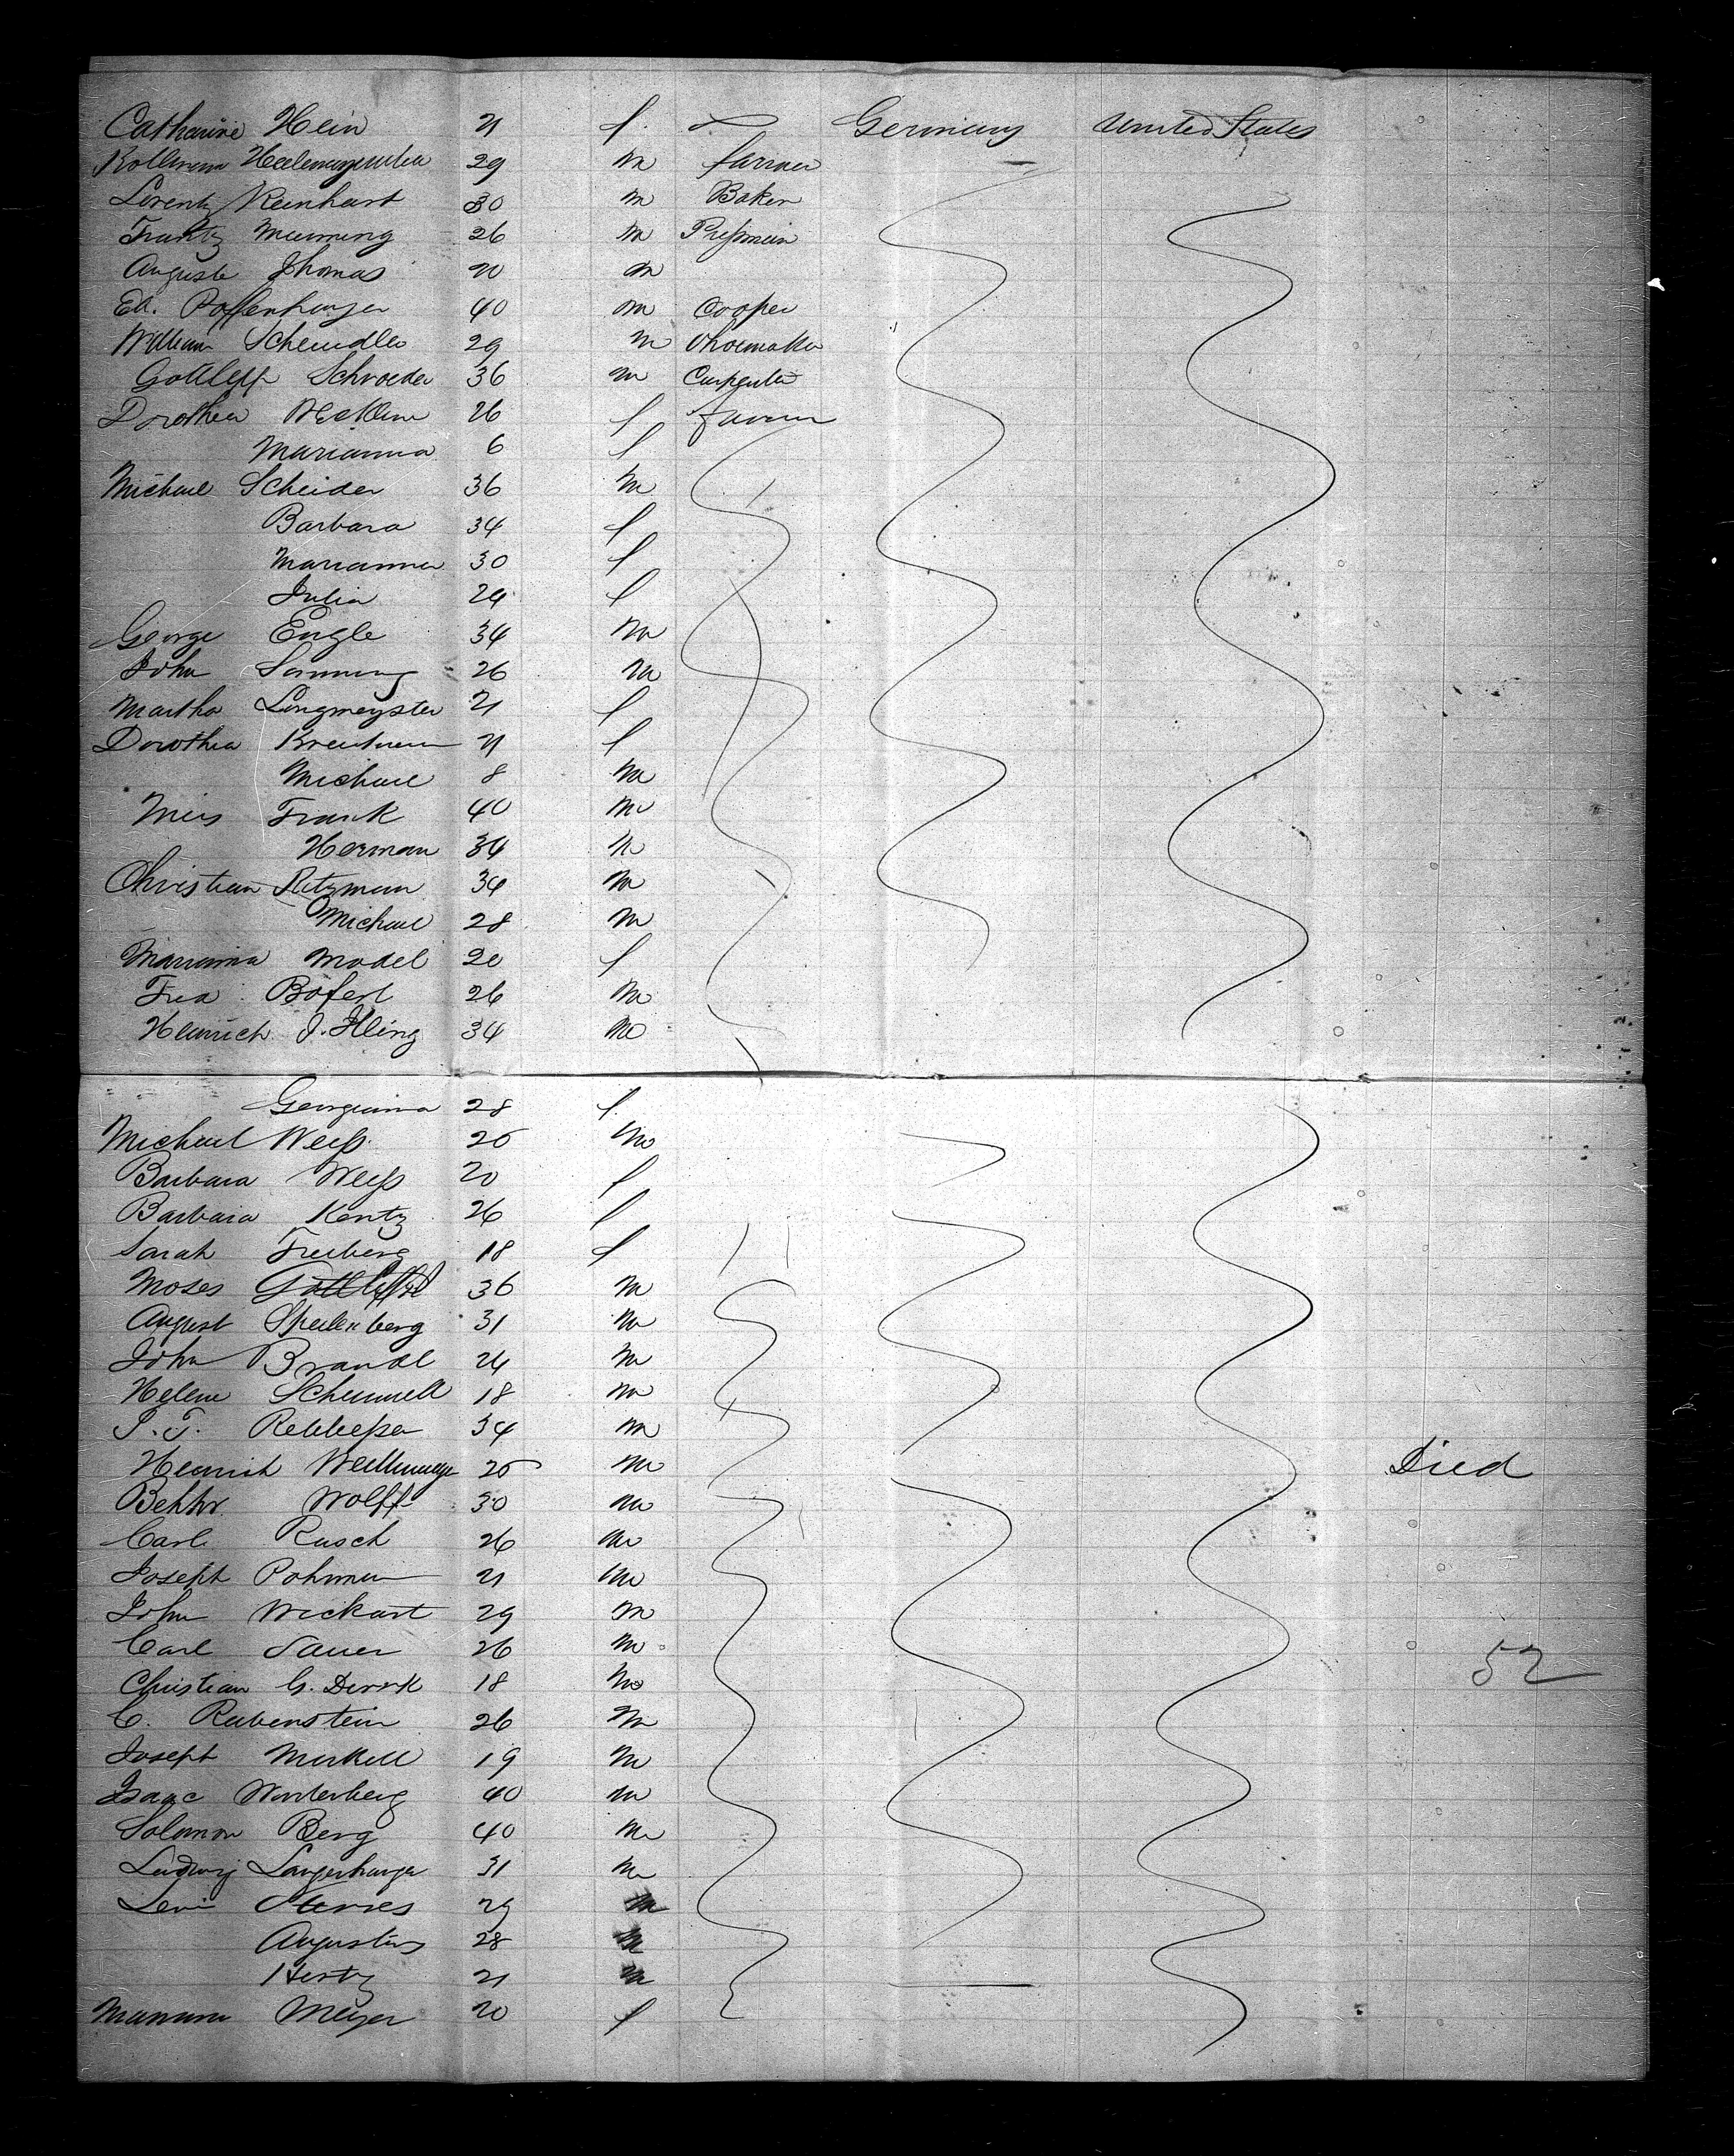 Catharine Hein 21 f. Germany United States
29 m farmer
Lorentz Reinhart 30 m Baker
Frantz 26 m Pressman
Auguste Thomas 20 m
Ed. Poffenhauser 40 m Cooper
William Scheudler 29 m Shoemaker
Gottlepp Schroeder 36 m Carpenter
Dorothea 26 f
Marianna 6 f
Michael Scheider 36 m
Barbara 34 f
Marianna 30 f
Julia 24 f
George Engle 34 m
John 26 m
Martha Longmeyster 21 f
Dorothea 21 f
Michael 8 m
Frank 40 m
Herman 34 m
Christian Ritzman 34 m
Michael 28 m
Marianna Model 20 f
Boferl 26 m
Heinrich J. Illing 34 m
Georgianna 28 f.
Michael Weiss 25 m
Barbara Weiss 20 f
Barbara Kentz 26 f
Sarah Freiberg 18 f
Moses 36 m
August Spielenberg 31 m
John Brandl 24 m
Helene Schemmell 18 m
34 m
Heinrich 25 m Died
Wolff 30 m
Carl Rusch 26 m
Joseph Pohrman 21 m
John Weckart 29 m
Carl Sauer 26 m
52
Christian G. 18 m
C. Rubenstein 26 m
Joseph Merkell 19 m
Isaac Winterberg 40 m
Solomon Berg 40 m
Ludwig 31 m
Levi 29 m
Augustus 28 m
Hertz 21 m
Meyer 20 f